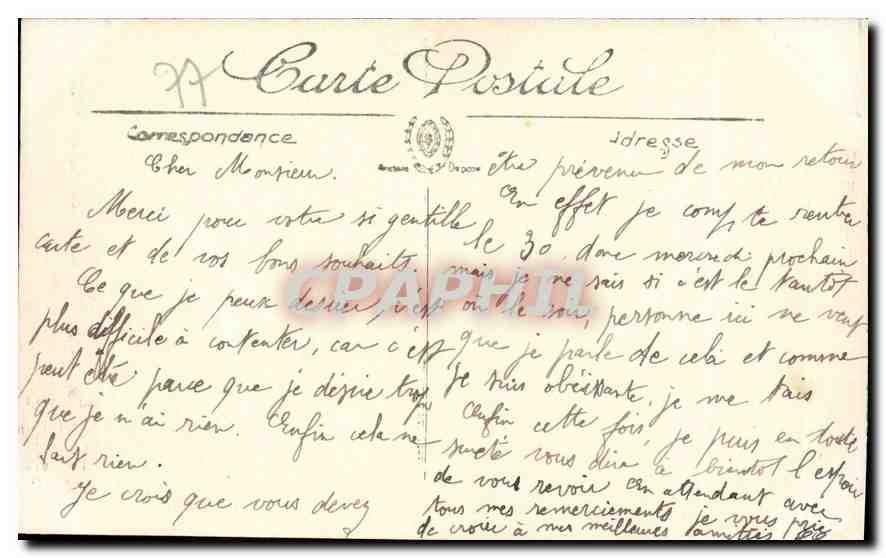 77
Carte Postale
Correspondance
Adresse
Cher Monsieur.
Merci pour votre si gentille
carte et de vos bons souhaits.
Ce que je peux désirer, c'est
plus difficile à contenter, car c'est
peut être parce que je désire trop
que je n'ai rien. Enfin cela ne
fait rien.
Je crois que vous devez
être prévenu de mon retour
En effet je compte rentrer
le 30, donc mercredi prochain
mais je ne sais si c'est le tantot
ou le soir, personne ici ne veut
que je parle de cela et comme
je suis obéissante, je me tais
Enfin cette fois, je puis en toute
sureté vous dire à bientot l'espoir
de vous revoir En attendant avec
tous mes remerciements je vous prie
de croire à mes meilleures amitiés
CPAPHIL